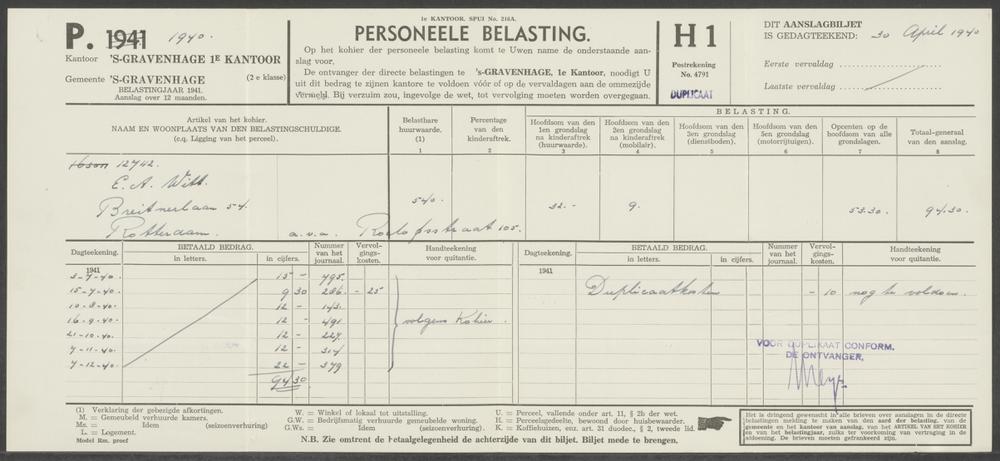 1e KANTOOR, SPUI No. 216A.
P. 1941 1940.
Kantoor 'S-GRAVENHAGE 1E KANTOOR
Gemeente 'S-GRAVENHAGE (2 e klasse)
BELASTINGJAAR 1941.
Aanslag over 12 maanden.
PERSONEELE BELASTING.
Op het kohier der personeele belasting komt te Uwen name de onderstaande aan-
slag voor.
De ontvanger der directe belastingen te 'S-GRAVENHAGE, 1e Kantoor, noodigt U
uit dit bedrag te zijnen kantore te voldoen vóór of op de vervaldagen aan de ommezijde
vermeld. Bij verzuim zou, ingevolge de wet, tot vervolging moeten worden overgegaan.
H 1
Postrekening
No. 4791
DUPLICAAT
DIT AANSLAGBILJET
IS GEDAGTEEKEND: 30 April 1940
Eerste vervaldag
Laatste vervaldag
Artikel van het kohier.
NAAM EN WOONPLAATS VAN DEN BELASTINGSCHULDIGE.
(c.q. Ligging van het perceel).
Belastbare huurwaarde. (1) 1
Percentage van den kinderaftrek 2
BELASTING.
Hoofdsom van den 1en grondslag na kinderaftrek (huurwaarde). 3
Hoofdsom van den 2en grondslag na kinderaftrek (mobilair). 4
Hoofdsom van den 3en grondslag (dienstboden). 5
Hoofdsom van den 5en grondslag (motorrijtuigen). 6
Opcenten op de hoofdsom van alle grondslagen. 7
Totaal-generaal van den aanslag. 8
12742.
E. A. Witt.
Breitnerlaan 54. 540. 32.- 9. 53.30. 94.30.
Rotterdam. a.v.a. Roelofsstraat 105.
Dagteekening. BETAALD BEDRAG. in letters. in cijfers. Nummer van het journaal. Vervolgingskosten. Handteekening voor quitantie.
Dagteekening. BETAALD BEDRAG. in letters. in cijfers. Nummer van het journaal. Vervolgingskosten. Handteekening voor quitantie.
1941
1941
3-7-40. 15 - 495.
15-7-40. 9 30 286. - 25
Duplicaatkosten - 10 nog te voldoen.
10-8-40. 12 - 143.
16-9-40. 12 - 491 volgens Kohier.
21-10-40. 12 - 227.
7-11-40. 12 - 314
7-12-40. 22 - 379
94 30.
VOOR DUPLIKAAT CONFORM.
DE ONTVANGER,
(1) Verklaring der gebezigde afkortingen.
M. = Gemeubeld verhuurde kamers.
Ms. = Idem (seizoenverhuring)
L. = Logement.
Model Rm. proef
W. = Winkel of lokaal tot uitstalling.
G.W. = Bedrijfsmatig verhuurde gemeubelde woning.
G.Ws. = Idem (seizoenverhuring).
U. = Perceel, vallende onder art. 11, § 2b der wet.
H. = Perceelsgedeelte, bewoond door huisbewaarder.
K. = Koffiehuizen, enz. art. 31 duodec., § 2, tweede lid.
N.B. Zie omtrent de betaalgelegenheid de achterzijde van dit biljet. Biljet mede te brengen.
Het is dringend gewenscht in alle brieven over aanslagen in de directe
belastingen melding te maken van den aard der belasting, van de
gemeente en het kantoor van aanslag, van het ARTIKEL VAN HET KOHIER
en van het belastingjaar, zulks ter voorkoming van vertraging in de
afdoening. De brieven moeten gefrankeerd zijn.